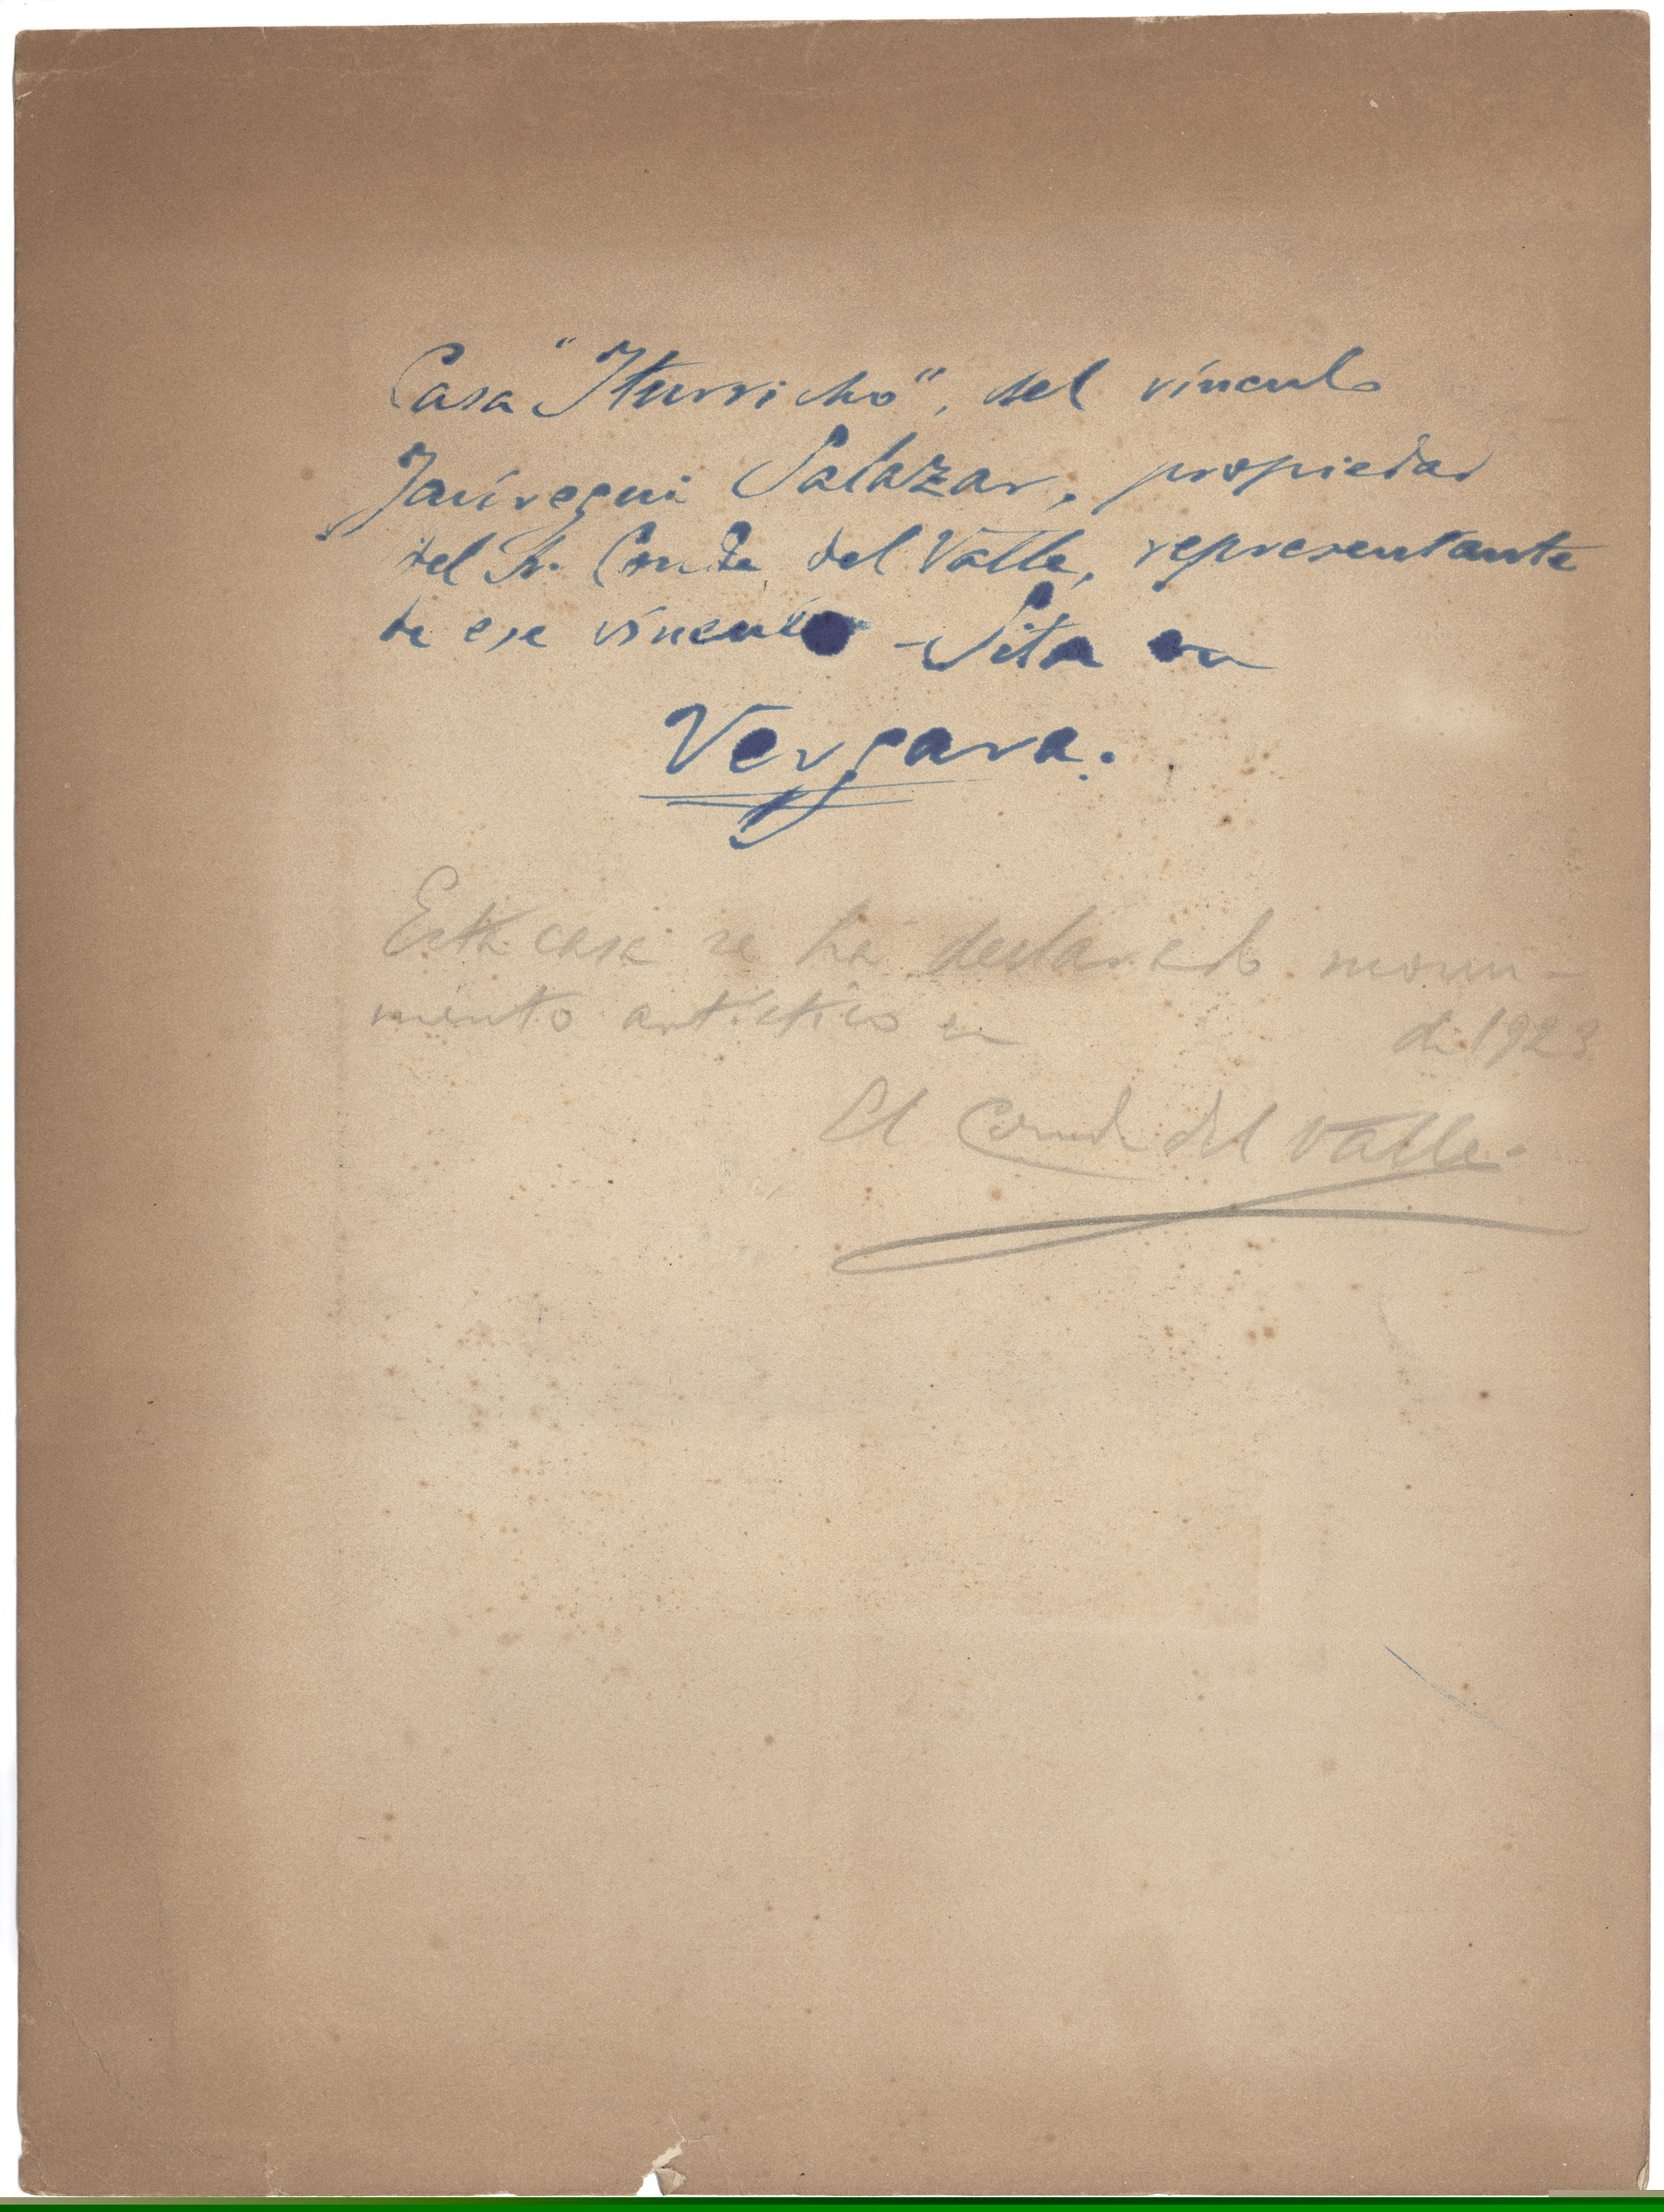 Casa "Iturricho", del vínculo
Jaúregui Salazar, propiedad
del Sr. Conde del Valle, representante
de ese vínculo - Sita en
Vergara.
Esta casa se ha declarado monu-
mento artístico en de 1923
El Conde del Valle.